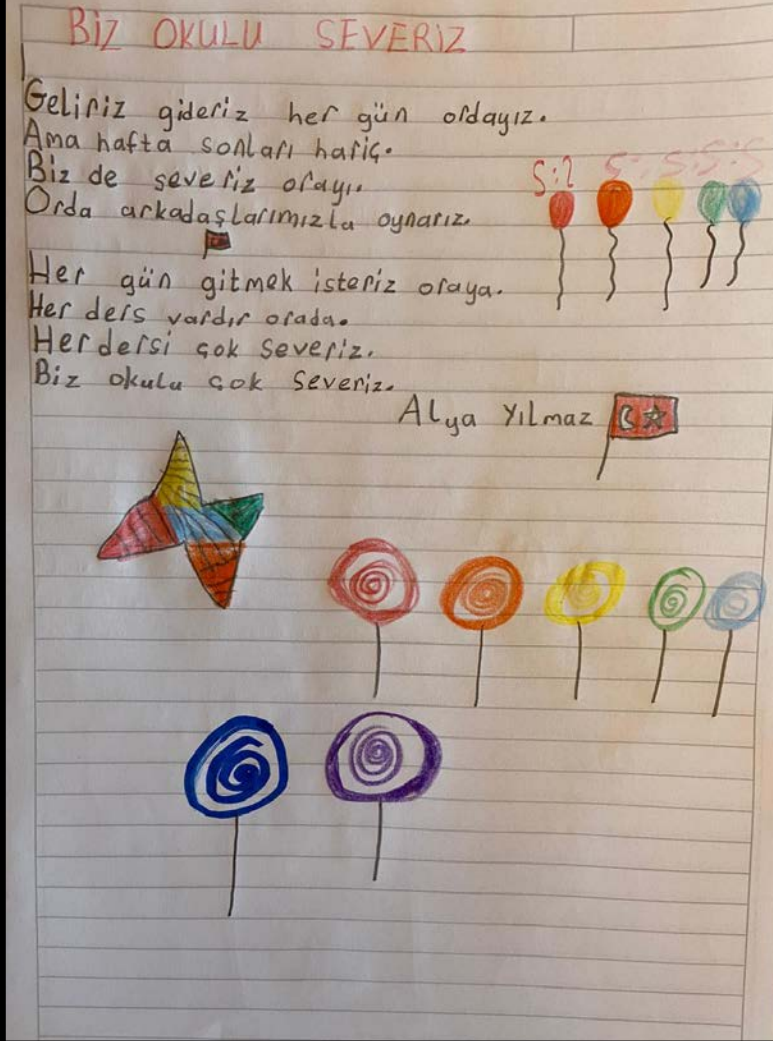 BİZ OKULU SEVERİZ
Geliriz gideriz her gün ordayız.
Ama hafta sonları hariç.
Biz de severiz orayı.
Orda arkadaşlarımızla oynarız.
Her gün gitmek isteriz oraya.
Her ders vardır orada.
Her dersi çok severiz.
Biz okulu çok severiz.
Alya Yılmaz